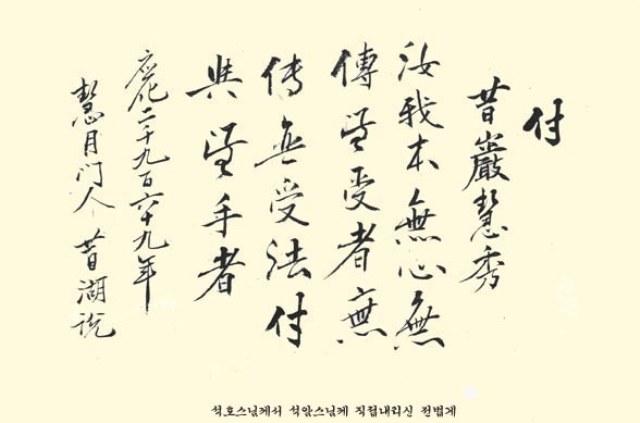 付
昔巖慧秀
汝我本無心無
傳無受者無
傳無受法付
與無手者
應化二千九百六十九年
慧月門人 昔湖說
석호스님께서 석암스님께 직접내리신 전법게